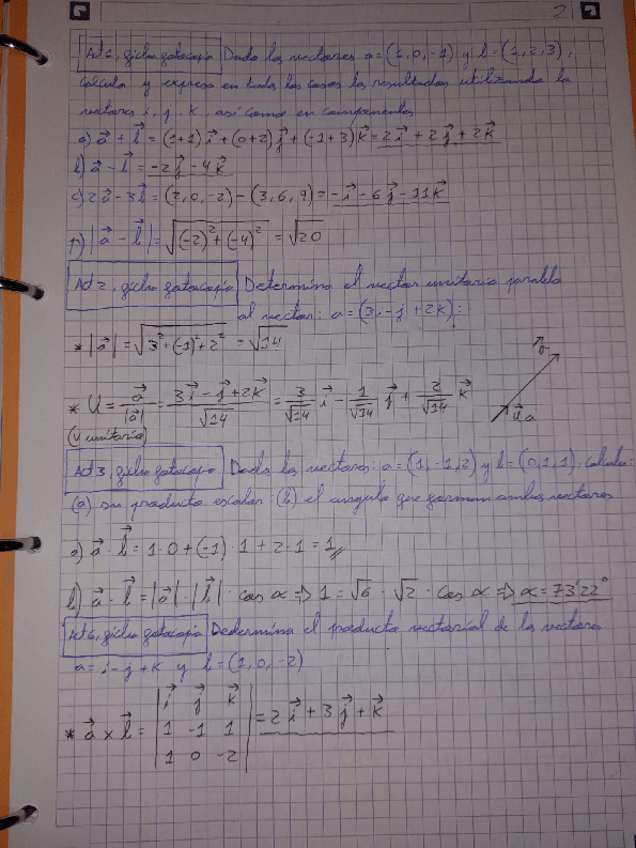 2
Act 1, ficha fotocopia Dado los vectores a = (1, 0, -1) y b = (1, 2, 3),
calcula y expresa en todos los casos los resultados utilizando los
vectores i, j, k, así como en componentes
a) a⃗ + b⃗ = (1+1) i⃗ + (0+2) j⃗ + (-1+3) k⃗ = 2 i⃗ + 2 j⃗ + 2 k⃗
b) a⃗ - b⃗ = -2 j⃗ - 4 k⃗
c) 2a⃗ - 3b⃗ = (2, 0, -2) - (3, 6, 9) = - i⃗ - 6 j⃗ - 11 k⃗
|a⃗ - b⃗| = √((-2)² + (-4)²) = √20
Act 2, ficha fotocopia Determina el vector unitario paralelo
al vector: a = (3i - j + 2k):
* |a⃗| = √(3² + (-1)² + 2²) = √14
* U = a⃗/|a⃗| = (3 i⃗ - j⃗ + 2 k⃗)/√14 = 3/√14 i⃗ - 1/√14 j⃗ + 2/√14 k⃗
(v unitario)
u⃗ a
Act 3, ficha fotocopia Dado los vectores: a = (1, -1, 2) y b = (0, 1, 1), calcula:
(a) su producto escalar (b) el angulo que forman ambos vectores
a) a⃗ · b⃗ = 1 · 0 + (-1) · 1 + 2 · 1 = 1
b) a⃗ · b⃗ = |a⃗| · |b⃗| · cos α => 1 = √6 · √2 · cos α => α = 73'22°
Act 6, ficha fotocopia Dedermina el producto vectorial de los vectores
a = i - j + k y b = (1, 0, -2)
* a⃗ x b⃗ = | i⃗ j⃗ k⃗ | = 2 i⃗ + 3 j⃗ + k⃗
1 -1 1
1 0 -2